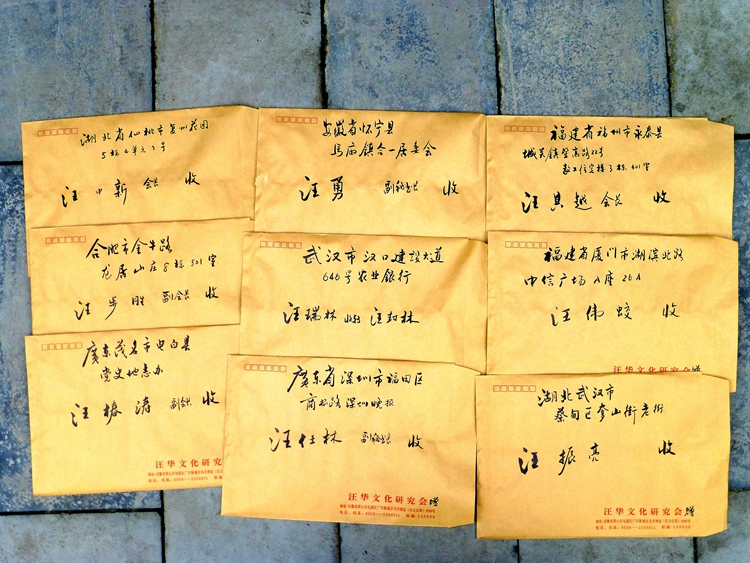 湖北省仙桃市复州花园
5栋4单元3号
汪中新 会长 收
安徽省怀宁县
马庙镇合一居委会
汪勇 副秘书长 收
福建省福州市永泰县
汪其越 会长 收
合肥市金牛路
龙居山庄8栋501室
汪步胜 副会长 收
武汉市汉口建设大道
646号农业银行
汪瑞林 汪和林
福建省厦门市湖滨北路
中信广场A座26A
汪伟蛟 收
广东茂名市电白县
党史地志办
汪椿涛 副会长 收
汪华文化研究会
广东省深圳市福田区
商报路深圳晚报
汪仕林 副秘书长 收
汪华文化研究会 赠
湖北武汉市
蔡甸区奓山街老街
汪振亮 收
汪华文化研究会 赠